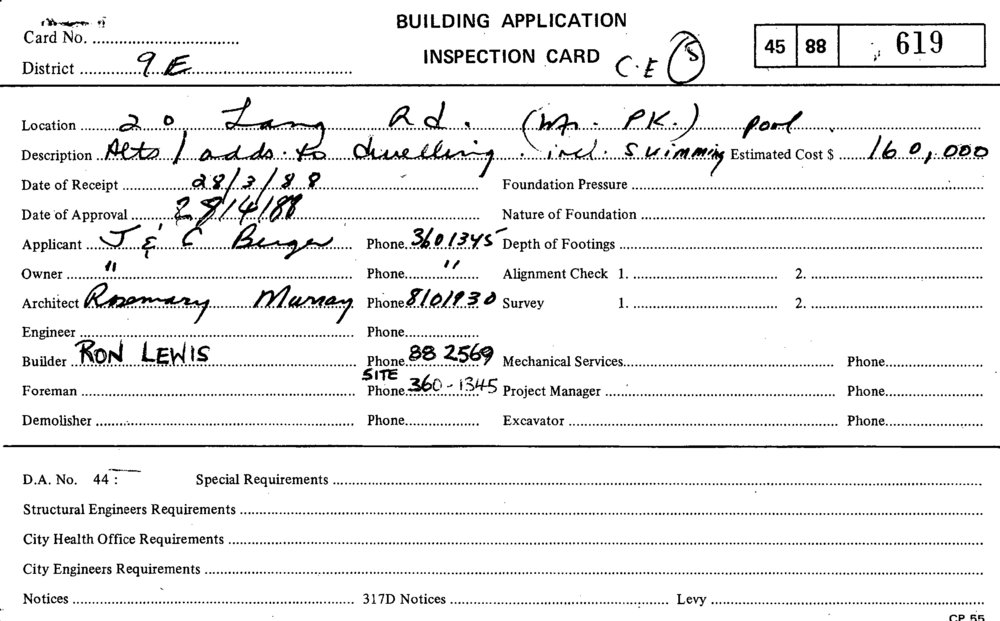 BUILDING APPLICATION
Card No.
INSPECTION CARD C.E (S) 45 88 619
District 9 E
Location 20 Lang Rd. (Wn. PK.) pool
Description Alts / adds. to dwelling. incl. swimming Estimated Cost $ 160,000
Date of Receipt 28/3/88 Foundation Pressure
Date of Approval 28/4/88 Nature of Foundation
Applicant J & C Berger Phone 3601345 Depth of Footings
Owner " Phone " Alignment Check 1. 2.
Architect Rosemary Murray Phone 8101930 Survey 1. 2.
Engineer Phone
Builder RON LEWIS Phone 88 2569 Mechanical Services Phone
SITE
Foreman Phone 360-1345 Project Manager Phone
Demolisher Phone Excavator Phone
D.A. No. 44: Special Requirements
Structural Engineers Requirements
City Health Office Requirements
City Engineers Requirements
Notices 317D Notices Levy
CP 55